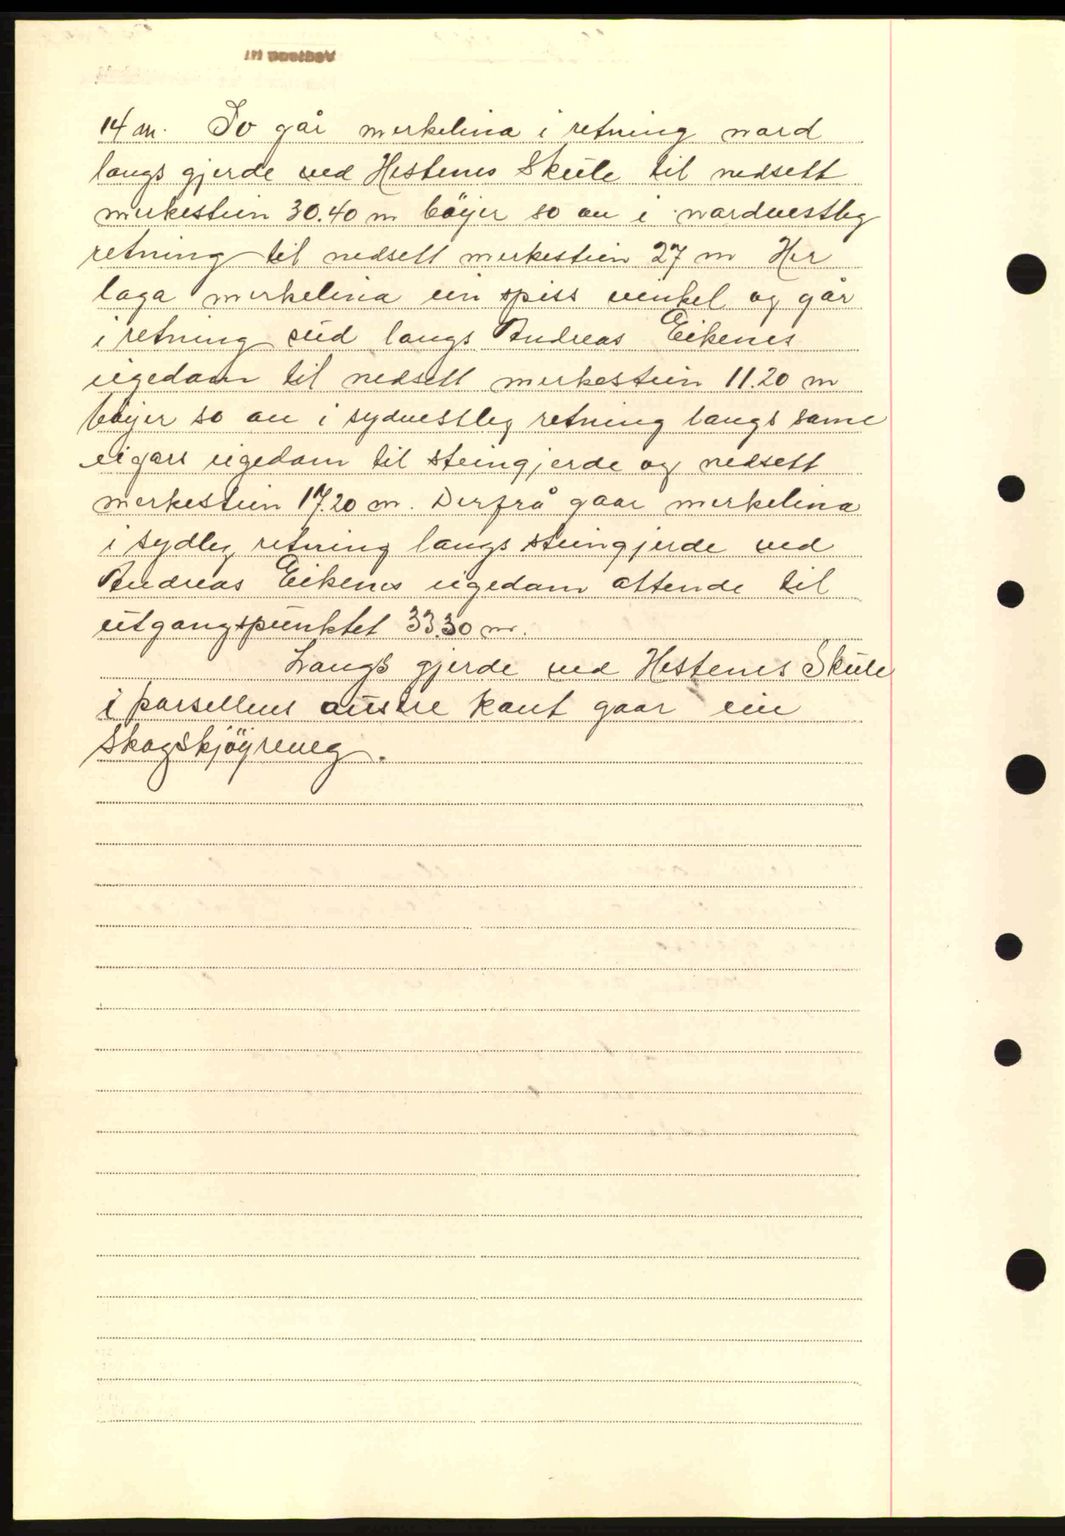 14 m. So går merkelina i retning nord
langs gjerde ved Hestenes Skule til nedsett
merkestein 30.40 m böyer so av i nordvestleg
retning til nedsett merkestein 27 m Her
laga merkelina ein spiss vinkel og går
i retning sud langs Andreas Eikenes
eigedom til nedsett merkestein 11.20 m
böyer so av i sydvestleg retning langs same
eigars eigedom til steingjerde og nedsett
merkestein 17.20 m. Derfrå gaar merkelina
i sydleg retning langs steingjerde ved
Andreas Eikenes eigedom attende til
utgangspunktet 33.30 m.
Langs gjerde ved Hestenes Skule
i parsellens austre kant gaar ein
skogskjöyreveg.